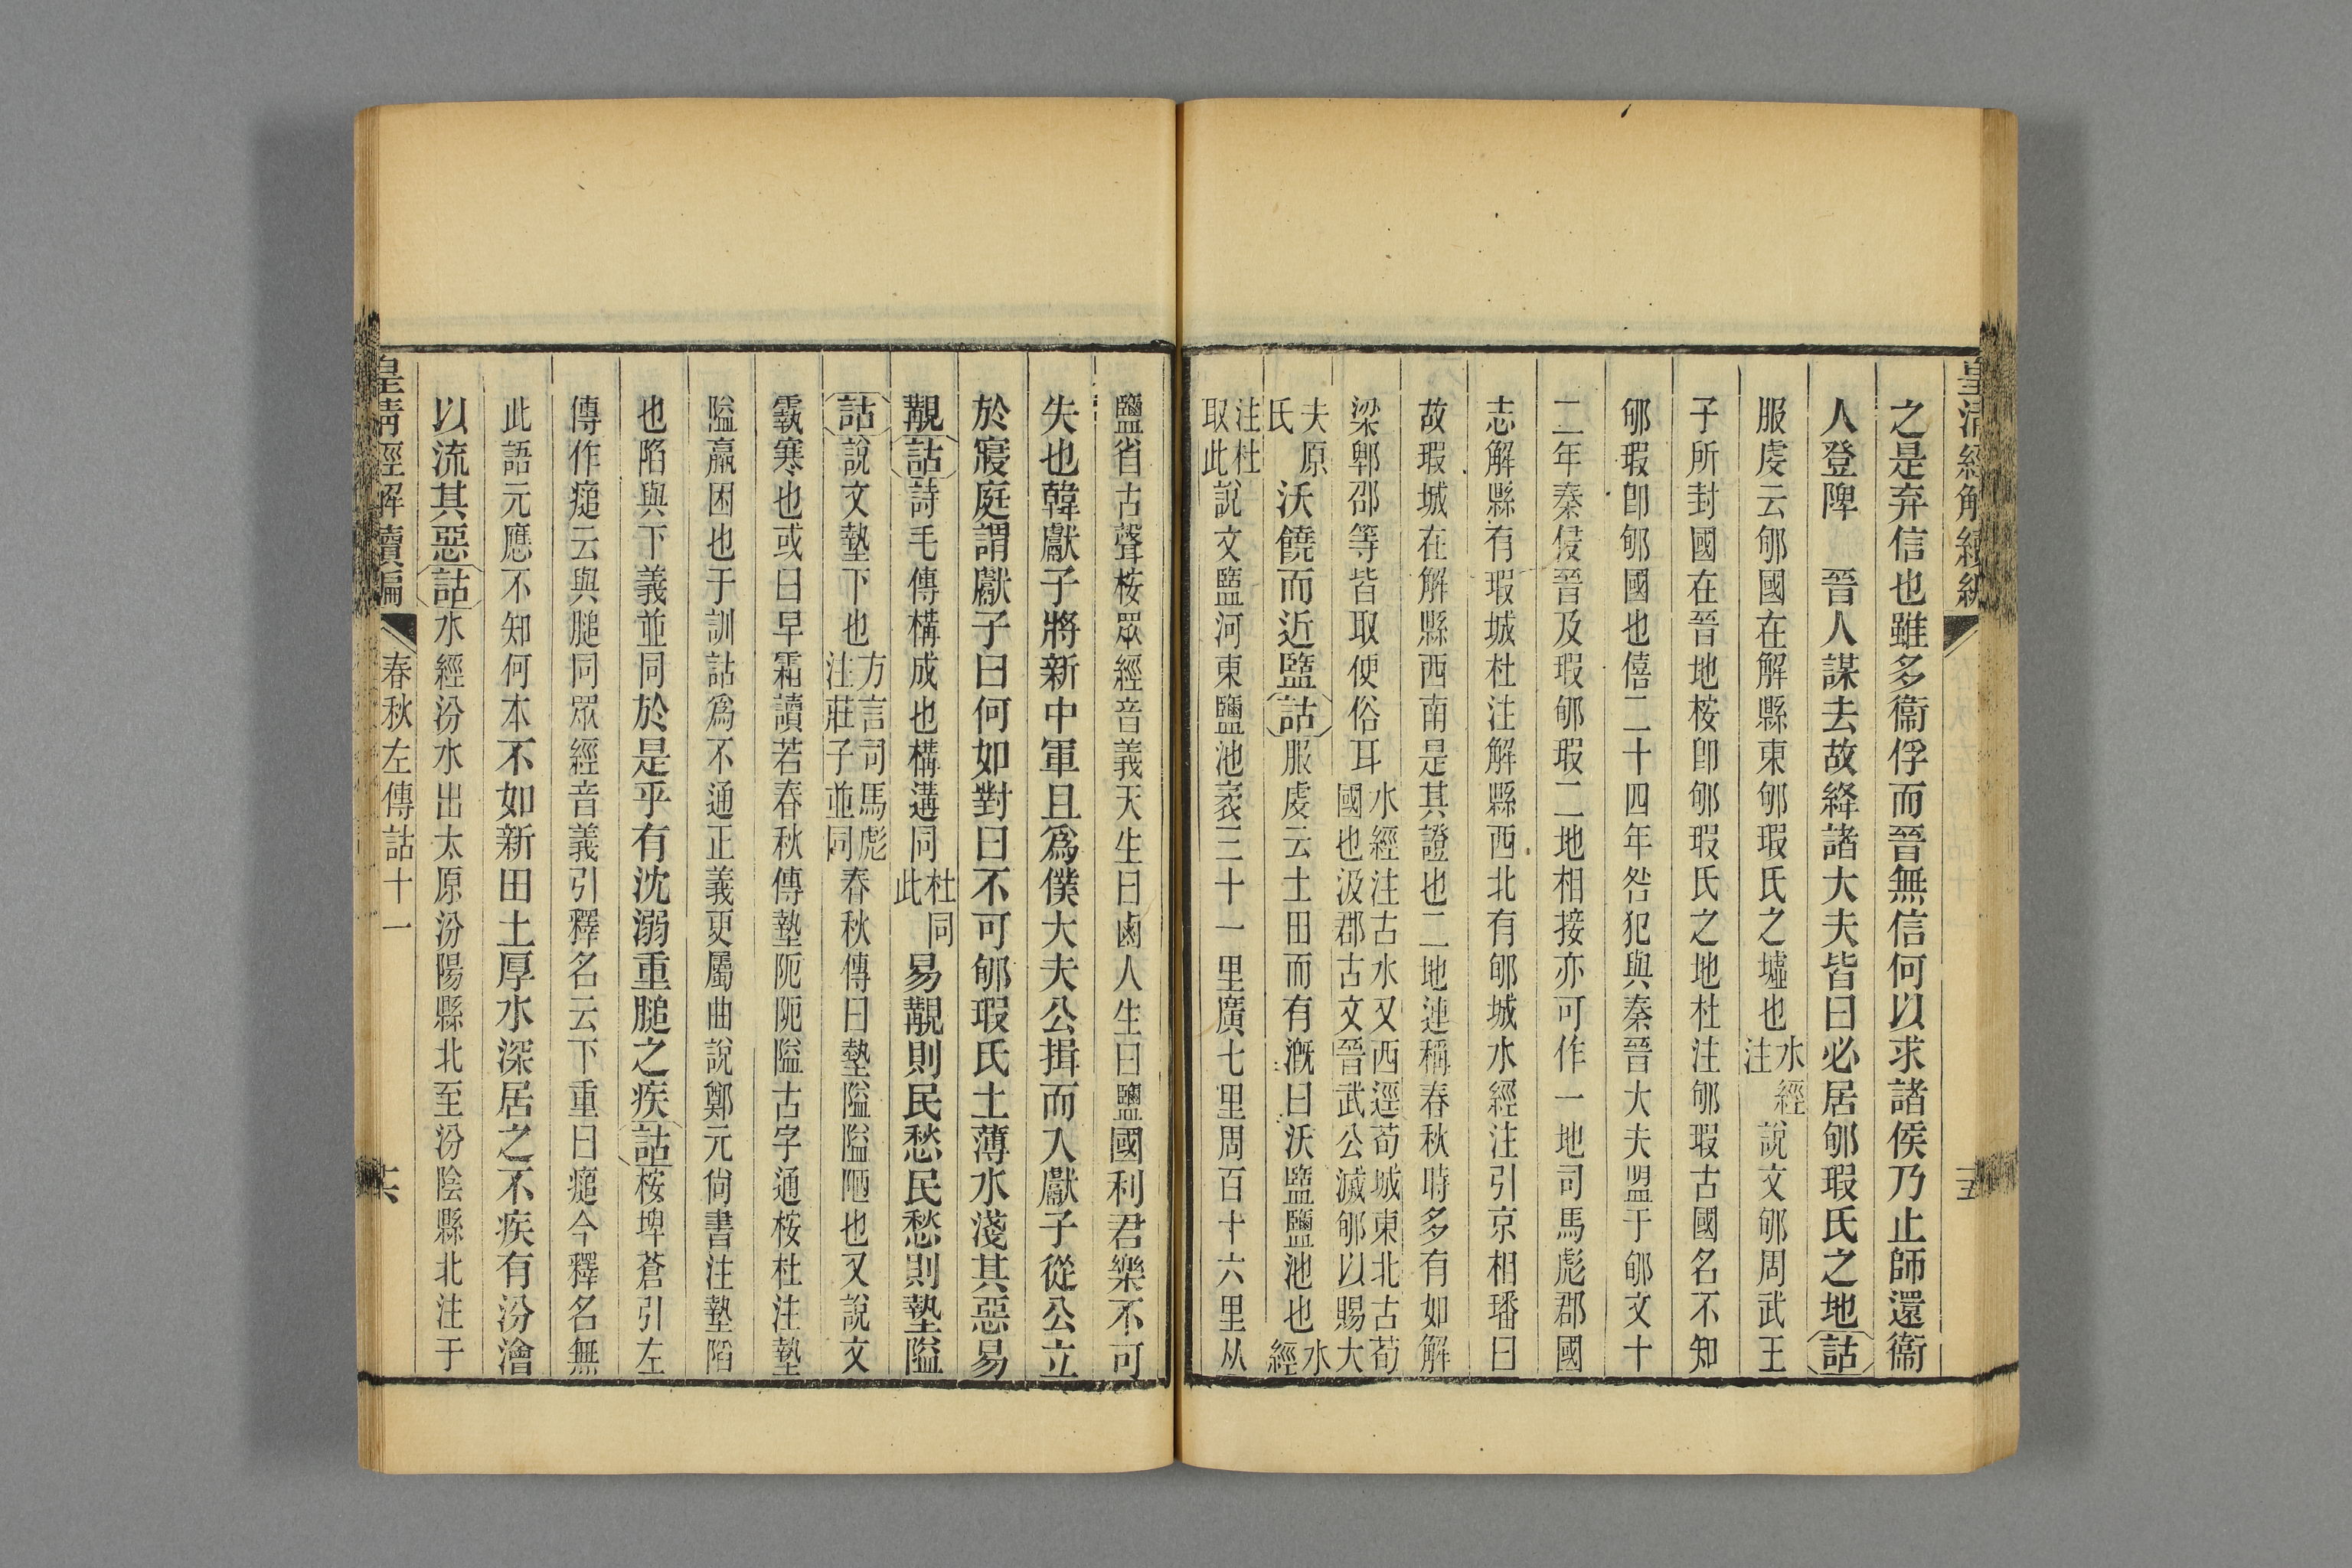 皇清經解續編
十五
之是弃信也雖多衞俘而晉無信何以求諸侯乃止師還衞
人登陴　晉人謀去故絳諸大夫皆曰必居郇瑕氏之地詁
服虔云郇國在解縣東郇瑕氏之墟也水經注說文郇周武王
子所封國在晉地桉卽郇瑕氏之地杜注郇瑕古國名不知
郇瑕卽郇國也僖二十四年咎犯與秦晉大夫盟于郇文十
二年秦侵晉及瑕郇瑕二地相接亦可作一地司馬彪郡國
志解縣有瑕城杜注解縣西北有郇城水經注引京相璠曰
故瑕城在解縣西南是其證也二地連稱春秋時多有如解
梁郫邵等皆取便俗耳水經注古水又西逕荀城東北古荀國也汲郡古文晉武公滅郇以賜大
夫原氏沃饒而近盬詁服虔云土田而有漑曰沃盬鹽池也水經
注杜取此說文盬河東鹽池袤三十一里廣七里周百十六里从
鹽省古聲桉眾經音義天生曰鹵人生曰鹽國利君樂不可
失也韓獻子將新中軍且爲僕大夫公揖而入獻子從公立
於寢庭謂獻子曰何如對曰不可郇瑕氏土薄水淺其惡易
覯詁詩毛傳構成也構遘同杜同此易覯則民愁民愁則墊隘
詁說文墊下也方言司馬彪注莊子並同春秋傳曰墊隘隘陋也又說文
霸寒也或曰早霜讀若春秋傳墊阨阨隘古字通桉杜注墊
隘羸困也于訓詁爲不通正義更屬曲說鄭元尙書注墊陷
也陷與下義並同於是乎有沈溺重膇之疾詁桉埤蒼引左
傳作㿉云與膇同眾經音義引釋名云下重曰㿉今釋名無
此語元應不知何本不如新田土厚水深居之不疾有汾澮
以流其惡詁水經汾水出太原汾陽縣北至汾陰縣北注于
皇清經解續編
春秋左傳詁十一
十六